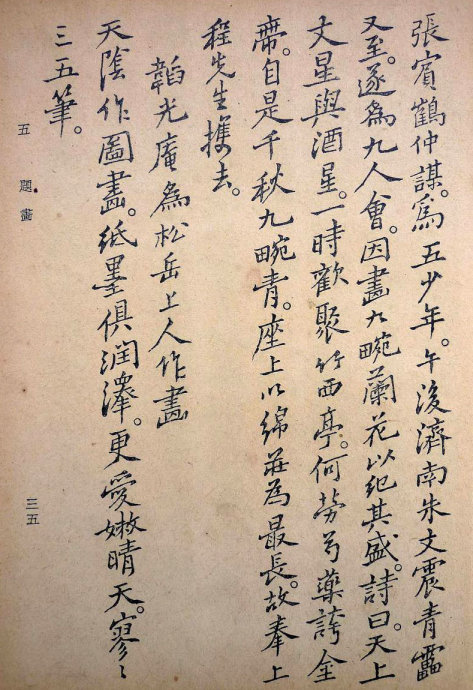 張賓鶴仲謀。爲五少年。午後濟南朱文震青靁
又至。遂爲九人會。因畫九畹蘭花以紀其盛。詩曰。天上
文星與酒星。一時歡聚竹西亭。何勞芍藥誇金
帶。自是千秋九畹青。座上以綿莊為最長。故奉上
程先生攜去。
韜光庵爲松岳上人作畫
天陰作圖畫。紙墨俱潤澤。更愛嫩晴天。寥〻
三五筆。
五　題畫
三五